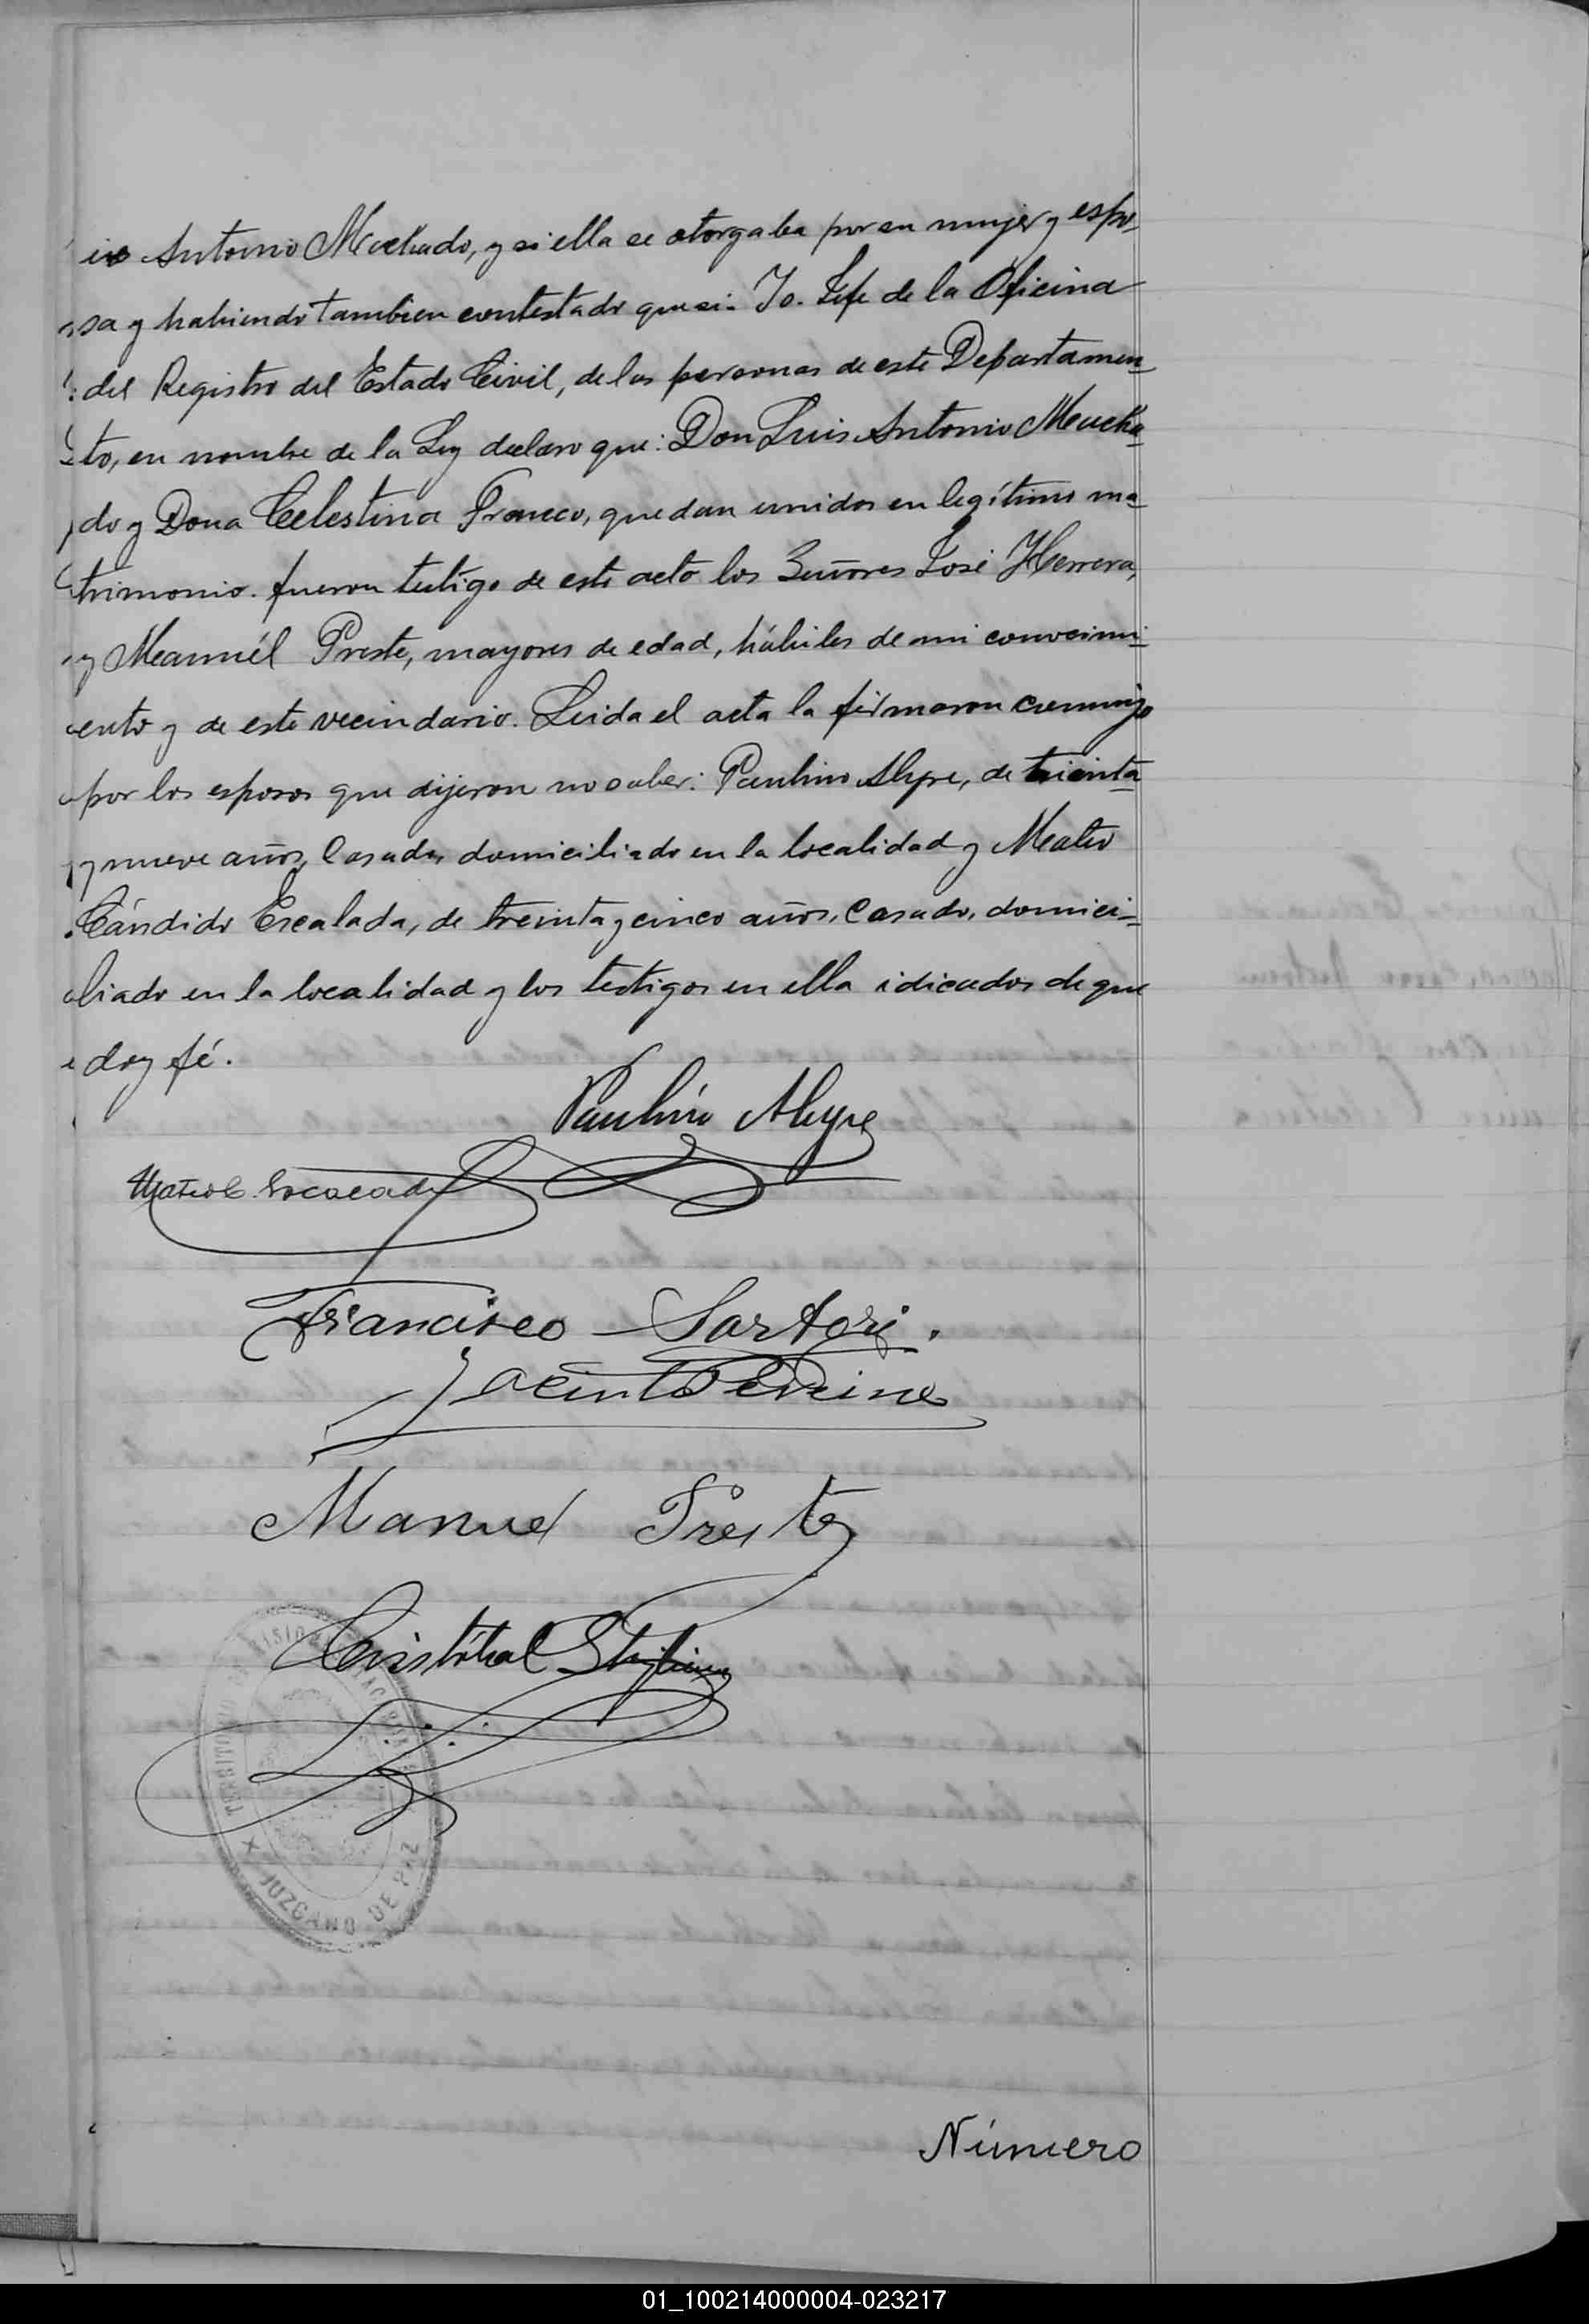 is Antonio Machado, y si ella se otorgaba por su mujer y espo-
sa y habiendo tambien contestado que si. Yo. Jefe de la Oficina
del Registro del Estado Civil, de las personas de este Departamen-
to, en nombre de la Ley declaro que: Don Luis Antonio Macha-
do y Dona Celestina Franco, quedan unidos en legítimo ma-
trimonio. fueron testigo de este acto los Señores José Herrera,
y Manuél Preste, mayores de edad, hábiles de mi conocimi-
ento y de este vecindario. Leida el acta la firmaron conmigo
por los esposos que dijeron no saber: Paulino Alegre, de treinta
y nueve años, Casado, domiciliado en la localidad y Mateo
Cándido Escalada, de treinta y cinco años, Casado, domici-
liado en la localidad y los testigos en ella idicados de que
doy fé.
Paulino Alegre
Mateo C. Escalada
Francisco Sartori.
Jacinto
Manuel Preste
Cristóbal
JUZGADO DE PAZ
Número
01_100214000004-023217